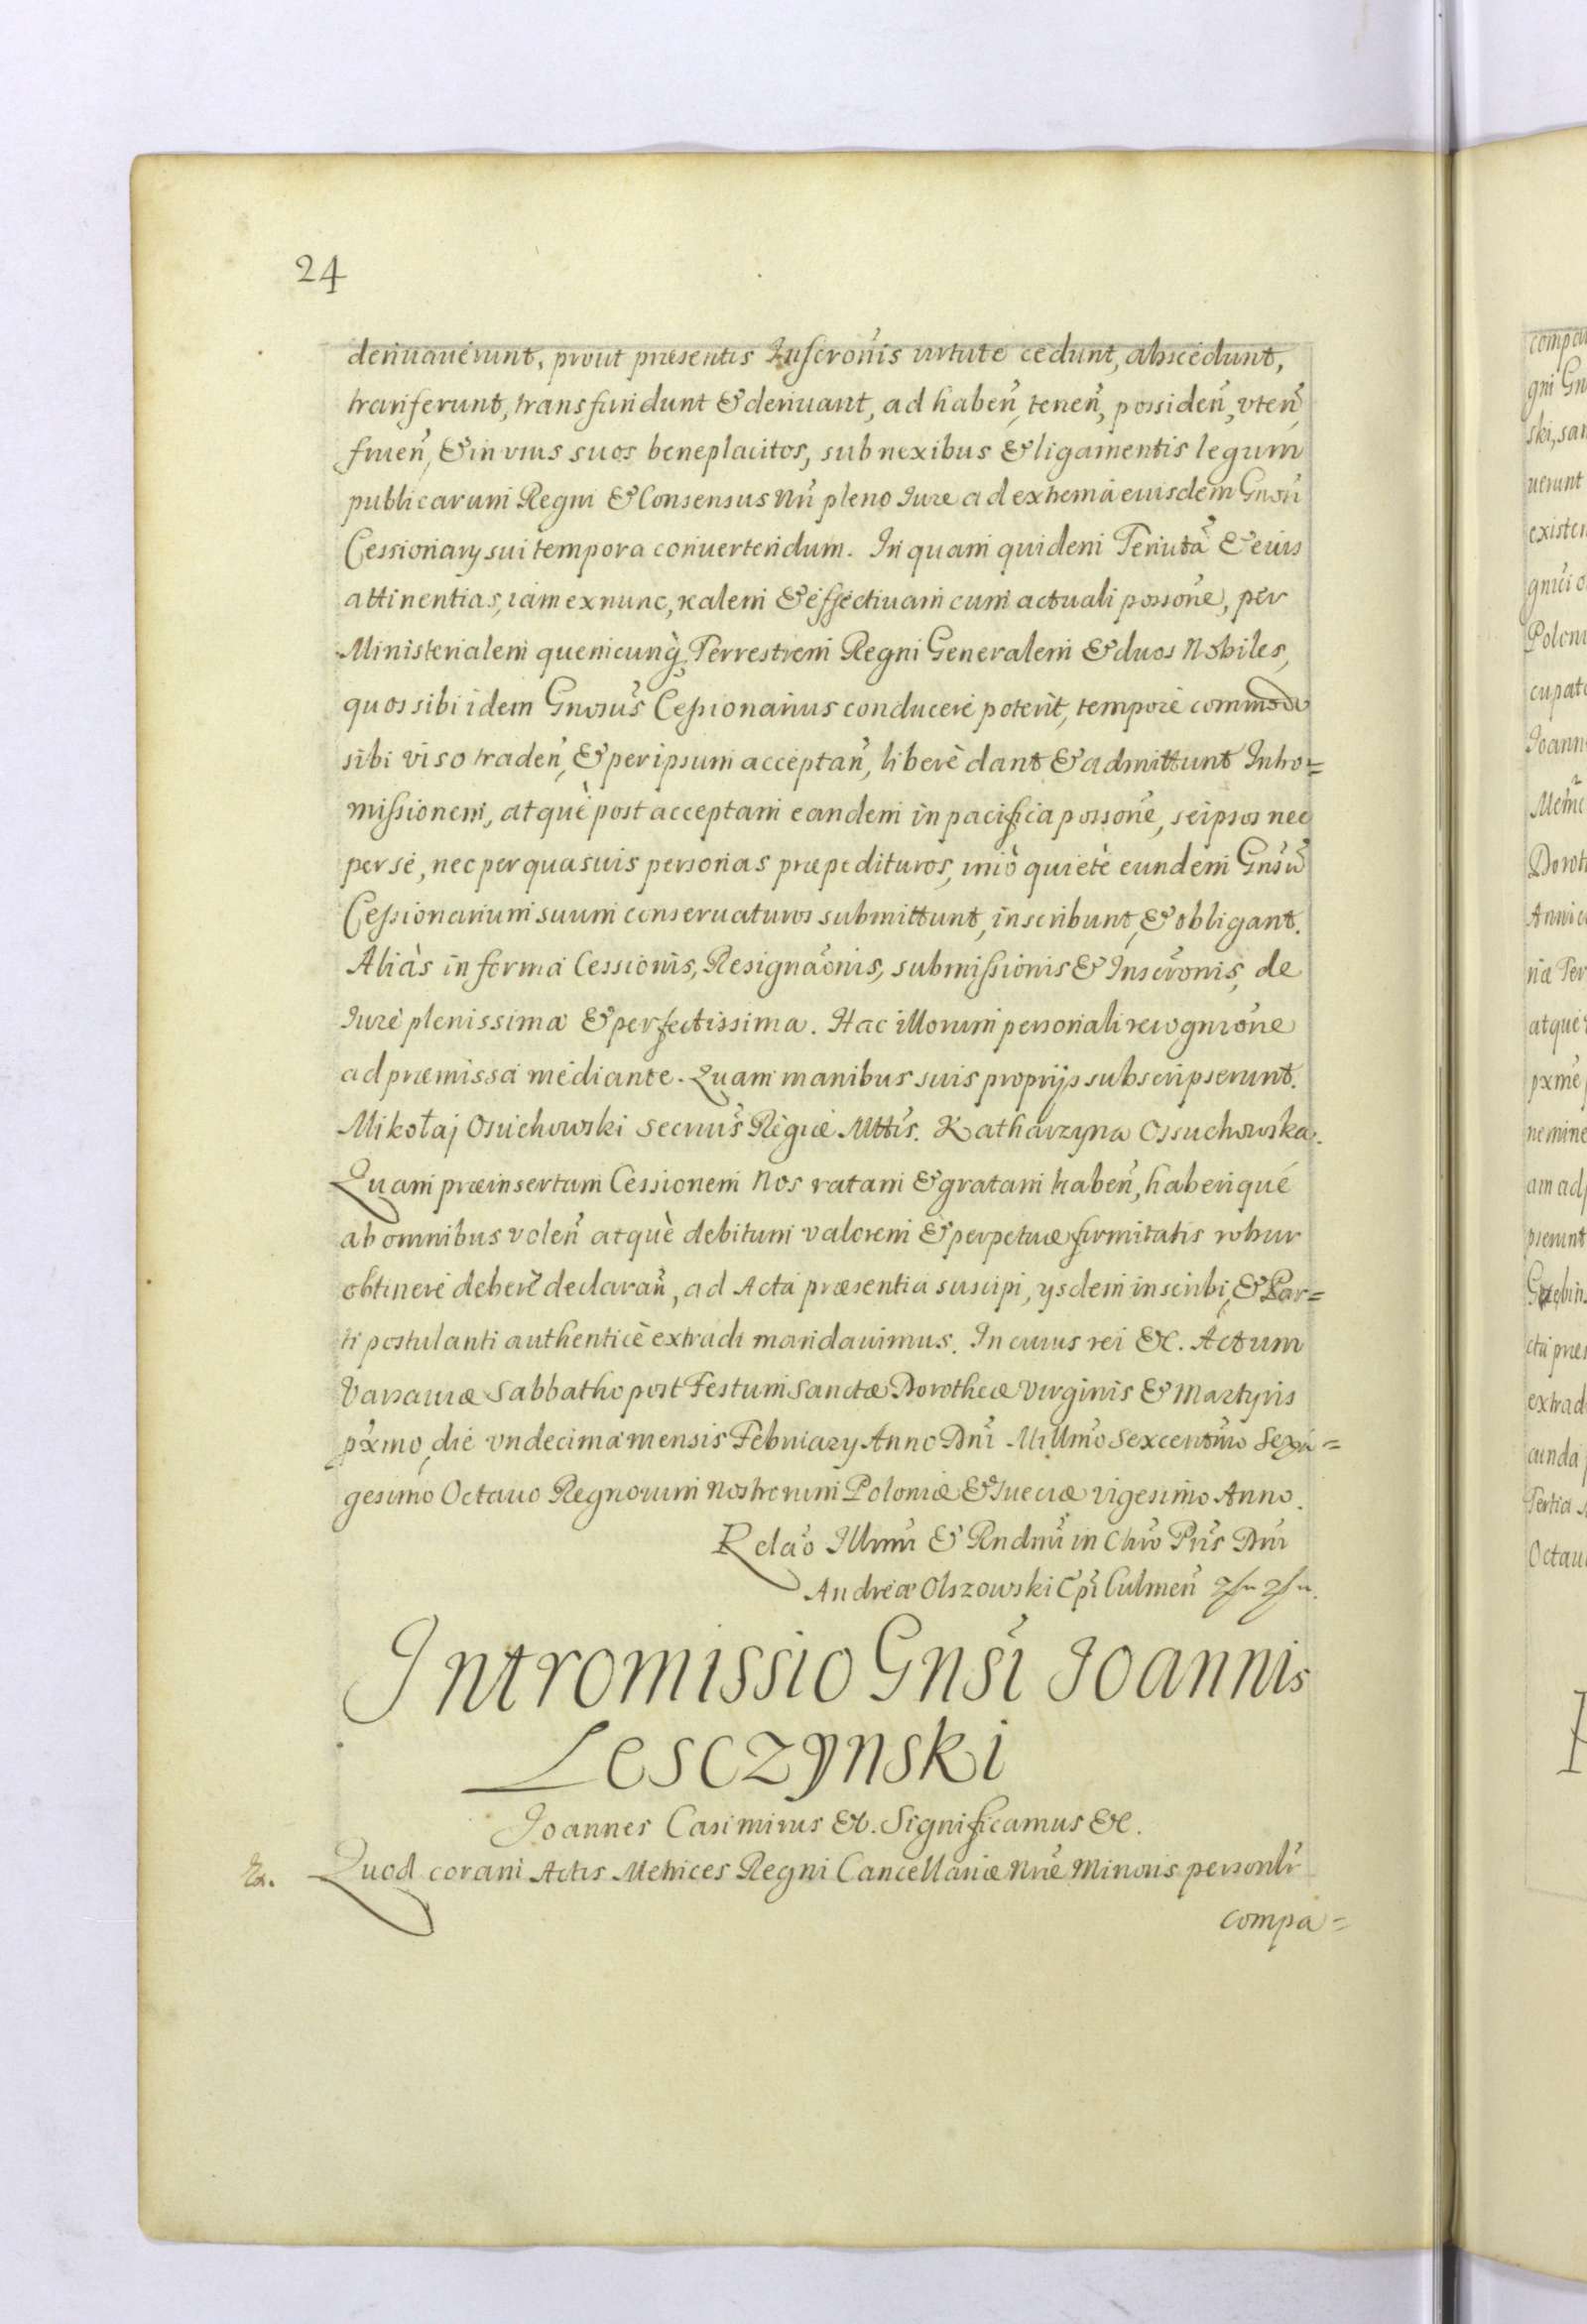 24
deriuauerunt, prout præsentis Inscronis virtute cedunt, abscedunt,
transferunt, transfundunt & deriuant, ad haben̄, tenen̄, possiden̄, vten̄
fruen̄, & in vsus suos beneplacitos, sub nexibus & ligamentis legum
publicarum Regni & Consensus Nr̄i pleno Iure ad extrema eiusdem Gnosi
Cessionary sui tempora conuertendum. In quam quidem Tenutā & eius
attinentias, iam ex nunc, realem & effectiuam cum actuali possone, per
Ministerialem quemcunq̀, Terrestrem Regni Generalem & duos Nobiles,
quos sibi idem Gnosus Cessionarius conducere poterit, tempore commodo
sibi viso traden̄, & per ipsum acceptan̄, liberè dant & admittunt Intro=
missionem, atquè post acceptam eandem in pacifica possone, seipsos nec
per se, nec per quasuis personas præpedituros, imò quietè eundem Gnsū
Cessionarium suum conseruaturos submittunt, inscribunt, & obligant.
Aliàs in forma Cessionis, Resignaōnis, submissionis & Inscrōnis, de
Iure plenissima & perfectissima. Hac illorum personali recognitōne
ad præmissa mediante. Quam manibus suis proprijs subscripserunt.
Mikołaj Osuchowski Secrius Regiæ Mttis. Katharzyna Ossuchowska.
Quam præinsertam Cessionem Nos ratam & gratam haben̄, haberiquè
ab omnibus volen̄ atquè debitum valorem & perpetuæ firmitatis robur
obtinere debere declaran̄, ad Acta præsentia suscipi, ysdem inscribi, & Par=
ti postulanti authenticè extradi mandauimus. In cuius rei &c. Actum
Varsauiæ Sabbatho post Festum Sanctæ Dorotheæ Virginis & Martyris
pxmo, die vndecima mensis Februarÿ Anno Dnī Millmo sexcentmo Sexa=
gesimo Octauo Regnorum Nostrorum Poloniæ & Sueciæ vigesimo Anno.
Relao Illmi & Rndmi in Chro Pris Dni
Andreæ Olszowski Epi Culmen̄
Intromissio Gnsi Ioannis
Lesczynski
Ioannes Casimirus &c. Significamus &c.
Ex. Quod coram Actis Metrices Regni Cancellariæ Nræ Minoris personlr
compa=